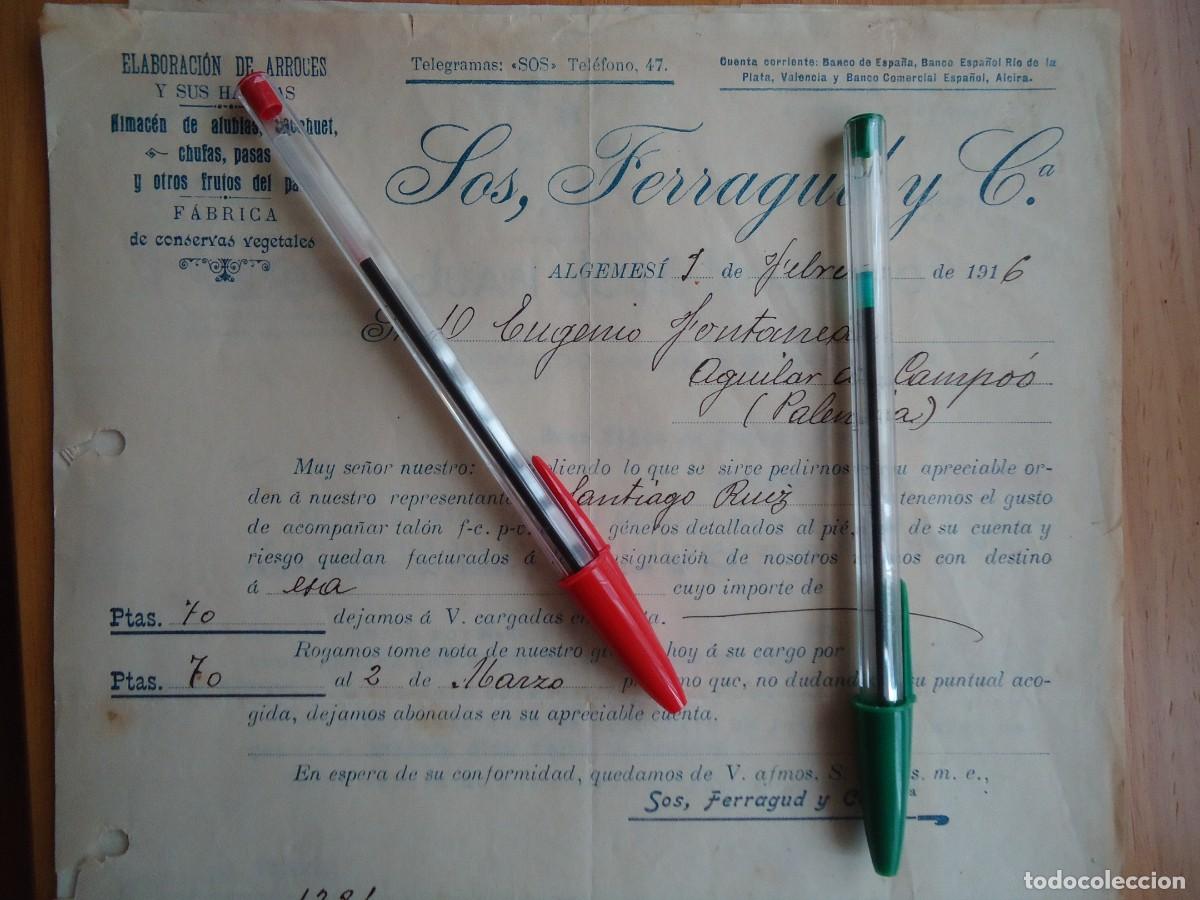 ELABORACIÓN DE ARROCES
Y SUS
Almacén de alubias, cacahuet,
chufas, pasas
y otros frutos del
FÁBRICA
de conservas vegetales
Telegramas: «SOS» Teléfono, 47.
Cuenta corriente: Banco de España, Banco Español Río de la
Plata, Valencia y Banco Comercial Español, Alcira.
Sos, Ferragud y Cª.
ALGEMESÍ 1 de Febre de 1916
Eugenio Fontaneda
Aguilar de Campóo
(Palencia)
Muy señor nuestro: pliendo lo que se sirve pedirnos su apreciable or-
den á nuestro representante Santiago Ruiz tenemos el gusto
de acompañar talón f-c. p-v. géneros detallados al pié, de su cuenta y
riesgo quedan facturados á signación de nosotros mismos con destino
á esa cuyo importe de
Ptas. 70 dejamos á V. cargadas en cuenta.
Rogamos tome nota de nuestro giro hoy á su cargo por
Ptas. 70 al 2 de Marzo no que, no dudando su puntual aco-
gida, dejamos abonadas en su apreciable cuenta.
En espera de su conformidad, quedamos de V. afmos. S. s. m. e.,
Sos, Ferragud y Cª
1281
todocoleccion